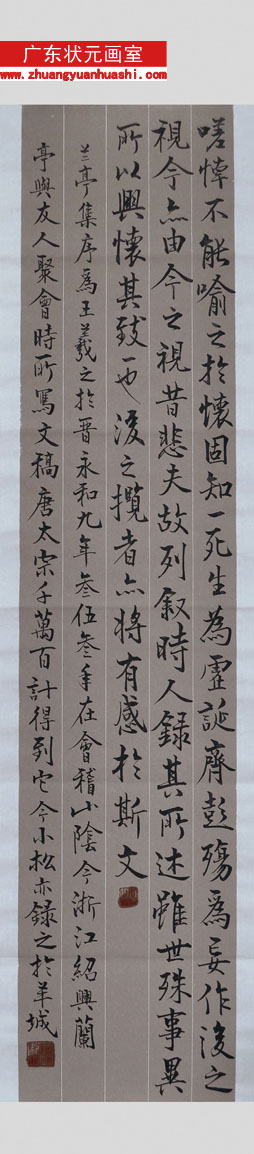 广东状元画室
www.zhuangyuanhuashi.com
嗟悼不能喻之於懷固知一死生為虛誕齊彭殤為妄作後之
視今亦由今之視昔悲夫故列叙時人錄其所述雖世殊事異
所以興懷其致一也後之攬者亦將有感於斯文
兰亭集序為王羲之於晉永和九年叁伍叁年在會稽山陰今浙江紹興蘭
亭與友人聚會時所寫文稿唐太宗千萬百計得到它今小松亦錄之於羊城